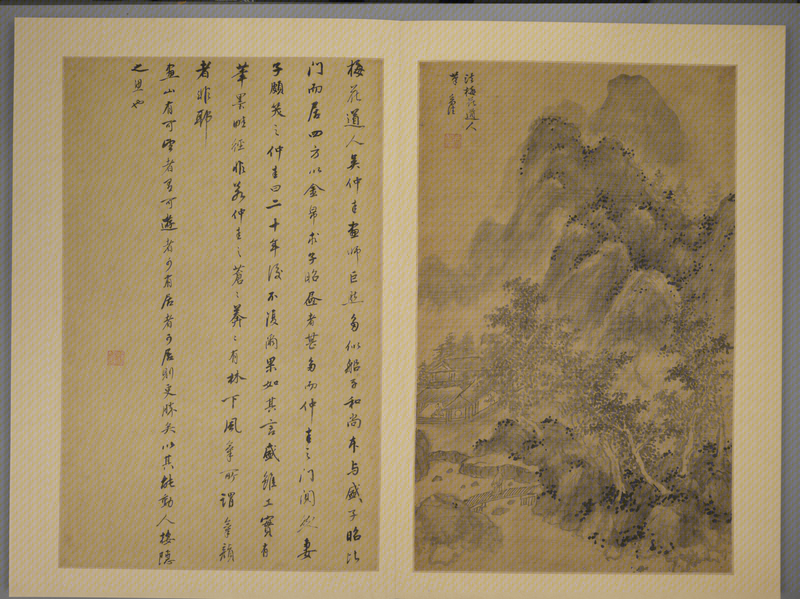 法梅花道人
筆
梅花道人吳仲圭畫師巨然多似船子和尚本与盛子昭比
門而居四方以金帛求子昭畫者甚多而仲圭之門闃然妻
子顧笑之仲圭曰二十年後不復爾果如其言盛雖工實有
筆墨畦徑非若仲圭之蒼〻莽〻有林下風氣所謂氣韻
者非耶
畫山有可望者有可遊者有居者可居則更勝矣以其能動人棲隱
之思也